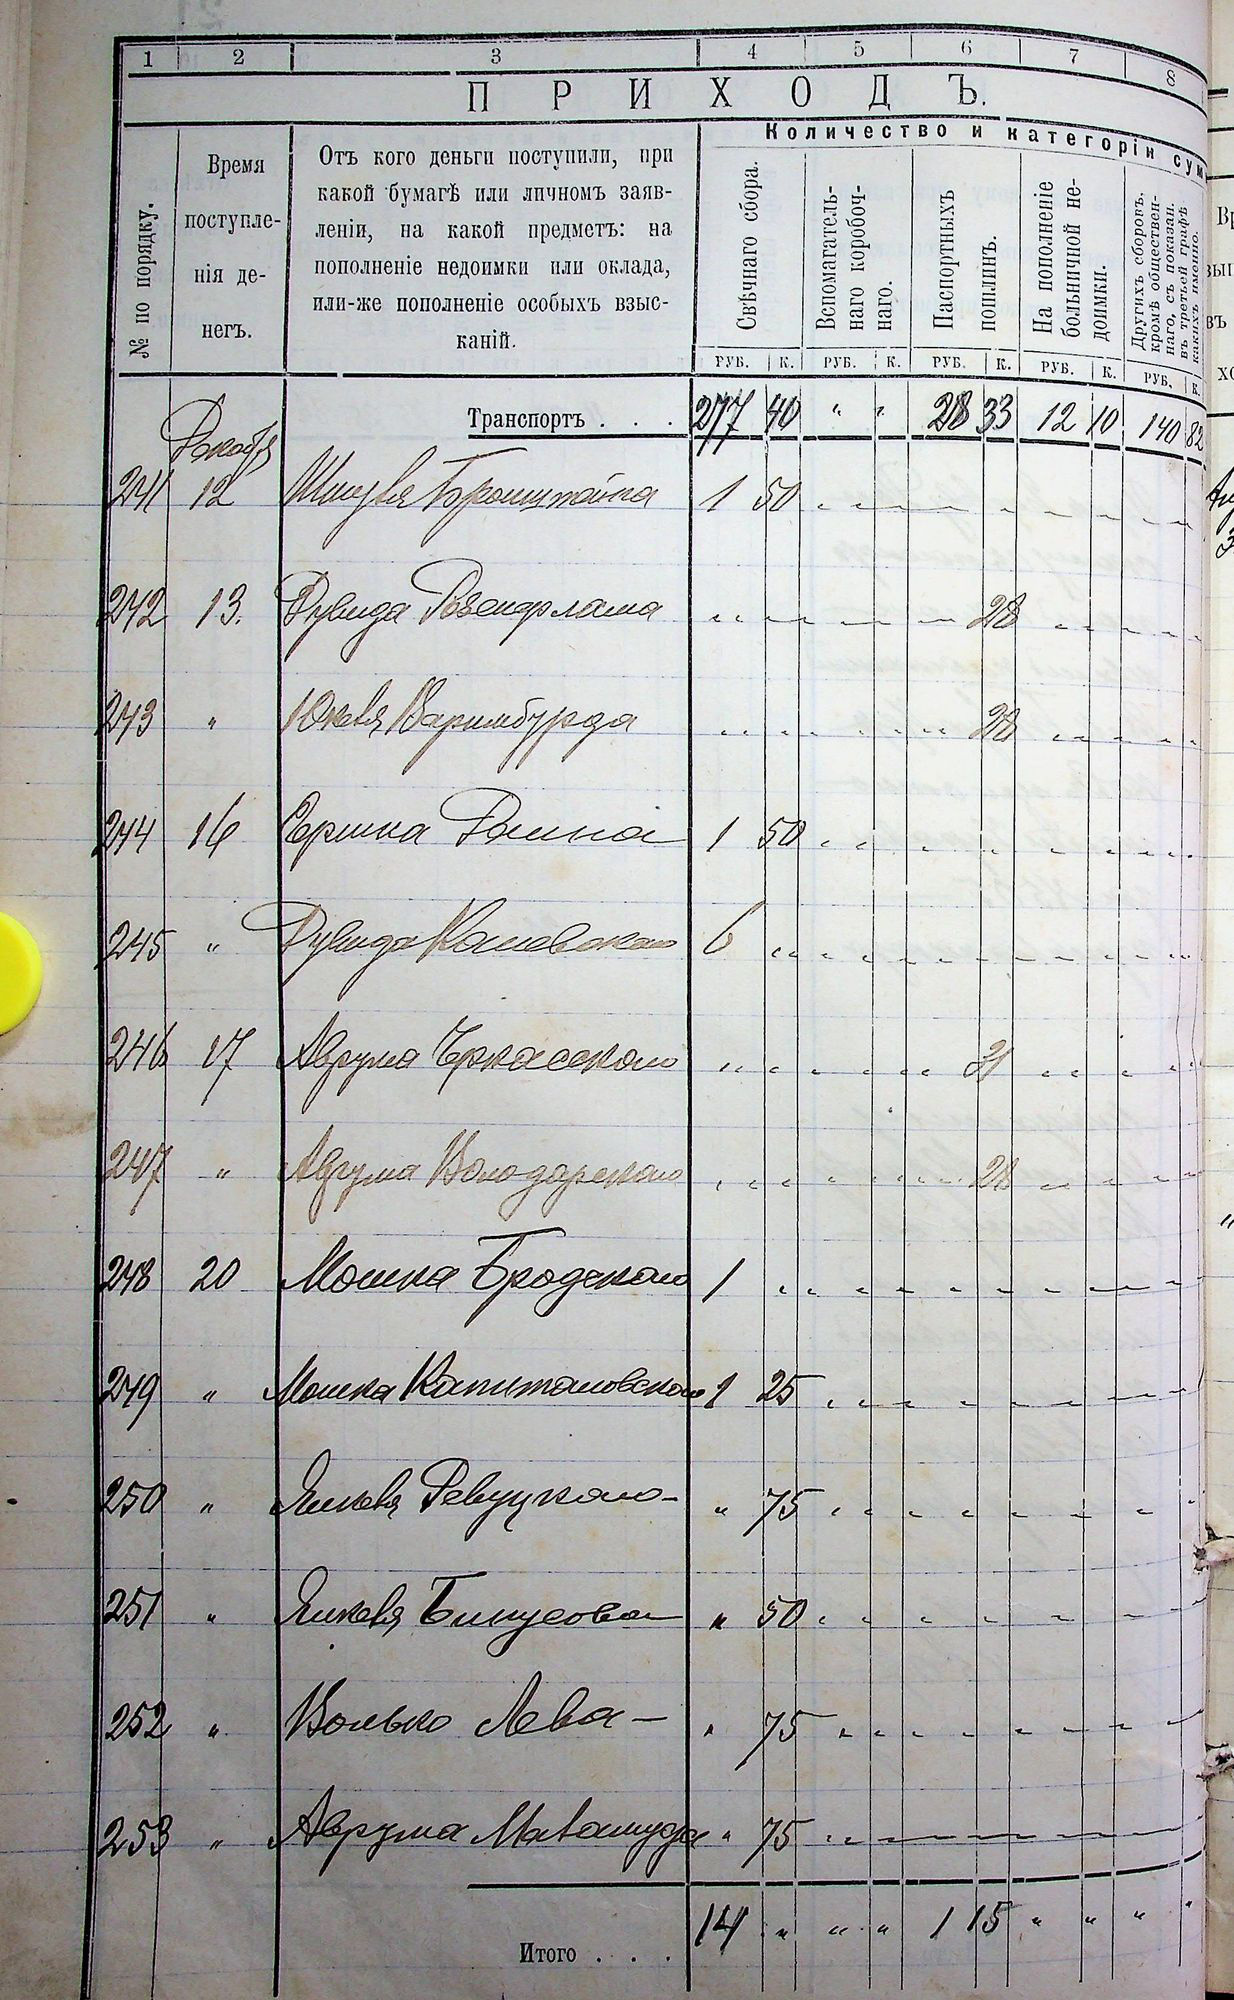 1 2 3 4 5 6 7 8
ПРИХОДЪ.
№ по порядку.
Время
поступле-
нія де-
негъ.
Отъ кого деньги поступили, при
какой бумагѣ или личномъ заяв-
леніи, на какой предметъ: на
пополненіе недоимки или оклада,
или-же пополненіе особыхъ взыс-
каній.
Количество и категоріи сум
Свѣчнаго сбора.
Вспомагатель-
наго коробоч-
наго.
Паспортныхъ
пошлинъ.
На пополненіе
больничной не-
доимки.
Другихъ сборовъ,
кромѣ обществен-
наго, съ показан.
въ третьей графѣ
какихъ именно.
РУБ. К. РУБ. К. РУБ. К. РУБ. К. РУБ. К.
Транспортъ . . . 277 40 " " 28 33 12 10 140 82
Декабря
241 12 Бронштейна 1 50
242 13. Дувида 28
243 " 28
244 16 Гершка 1 50
245 " Дувида Каневскаго 6
246 17 Аврума Черкасскаго 31
247 " Аврума Володарскаго 28
248 20 Мошка Бродскаго 1
249 " Мошка Капитановскаго 1 25
250 " Янкеля Ревуцкаго " 75
251 " Янкеля " 50
252 " Волько Лева " 75
253 " Аврума " 75
Итого . . . 14 " " " 1 15 " " " "